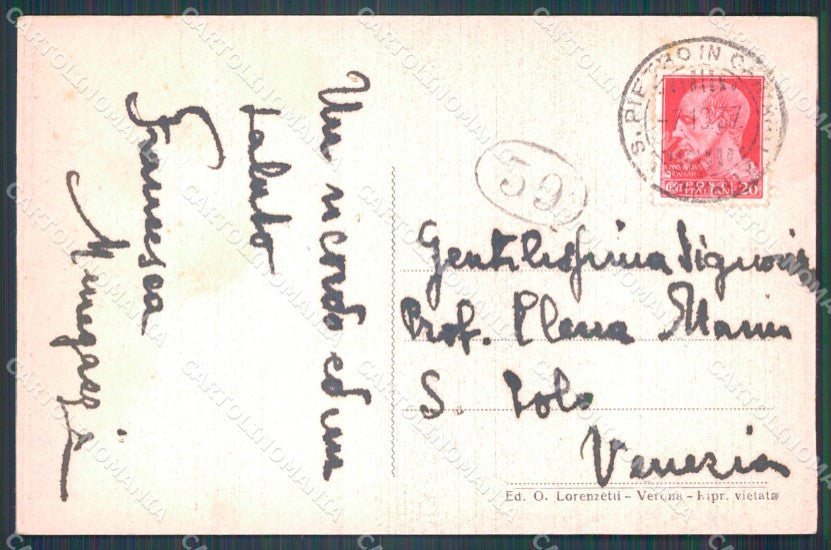 Un ricordo ed un
saluto
Francesca
S. PIETRO IN
37
20
59
Gentilissima Signora
Prof. Elena Marin
S. Polo
Venezia
Ed. O. Lorenzetti - Verona - Ripr. vietata
CARTOLINOMANIA